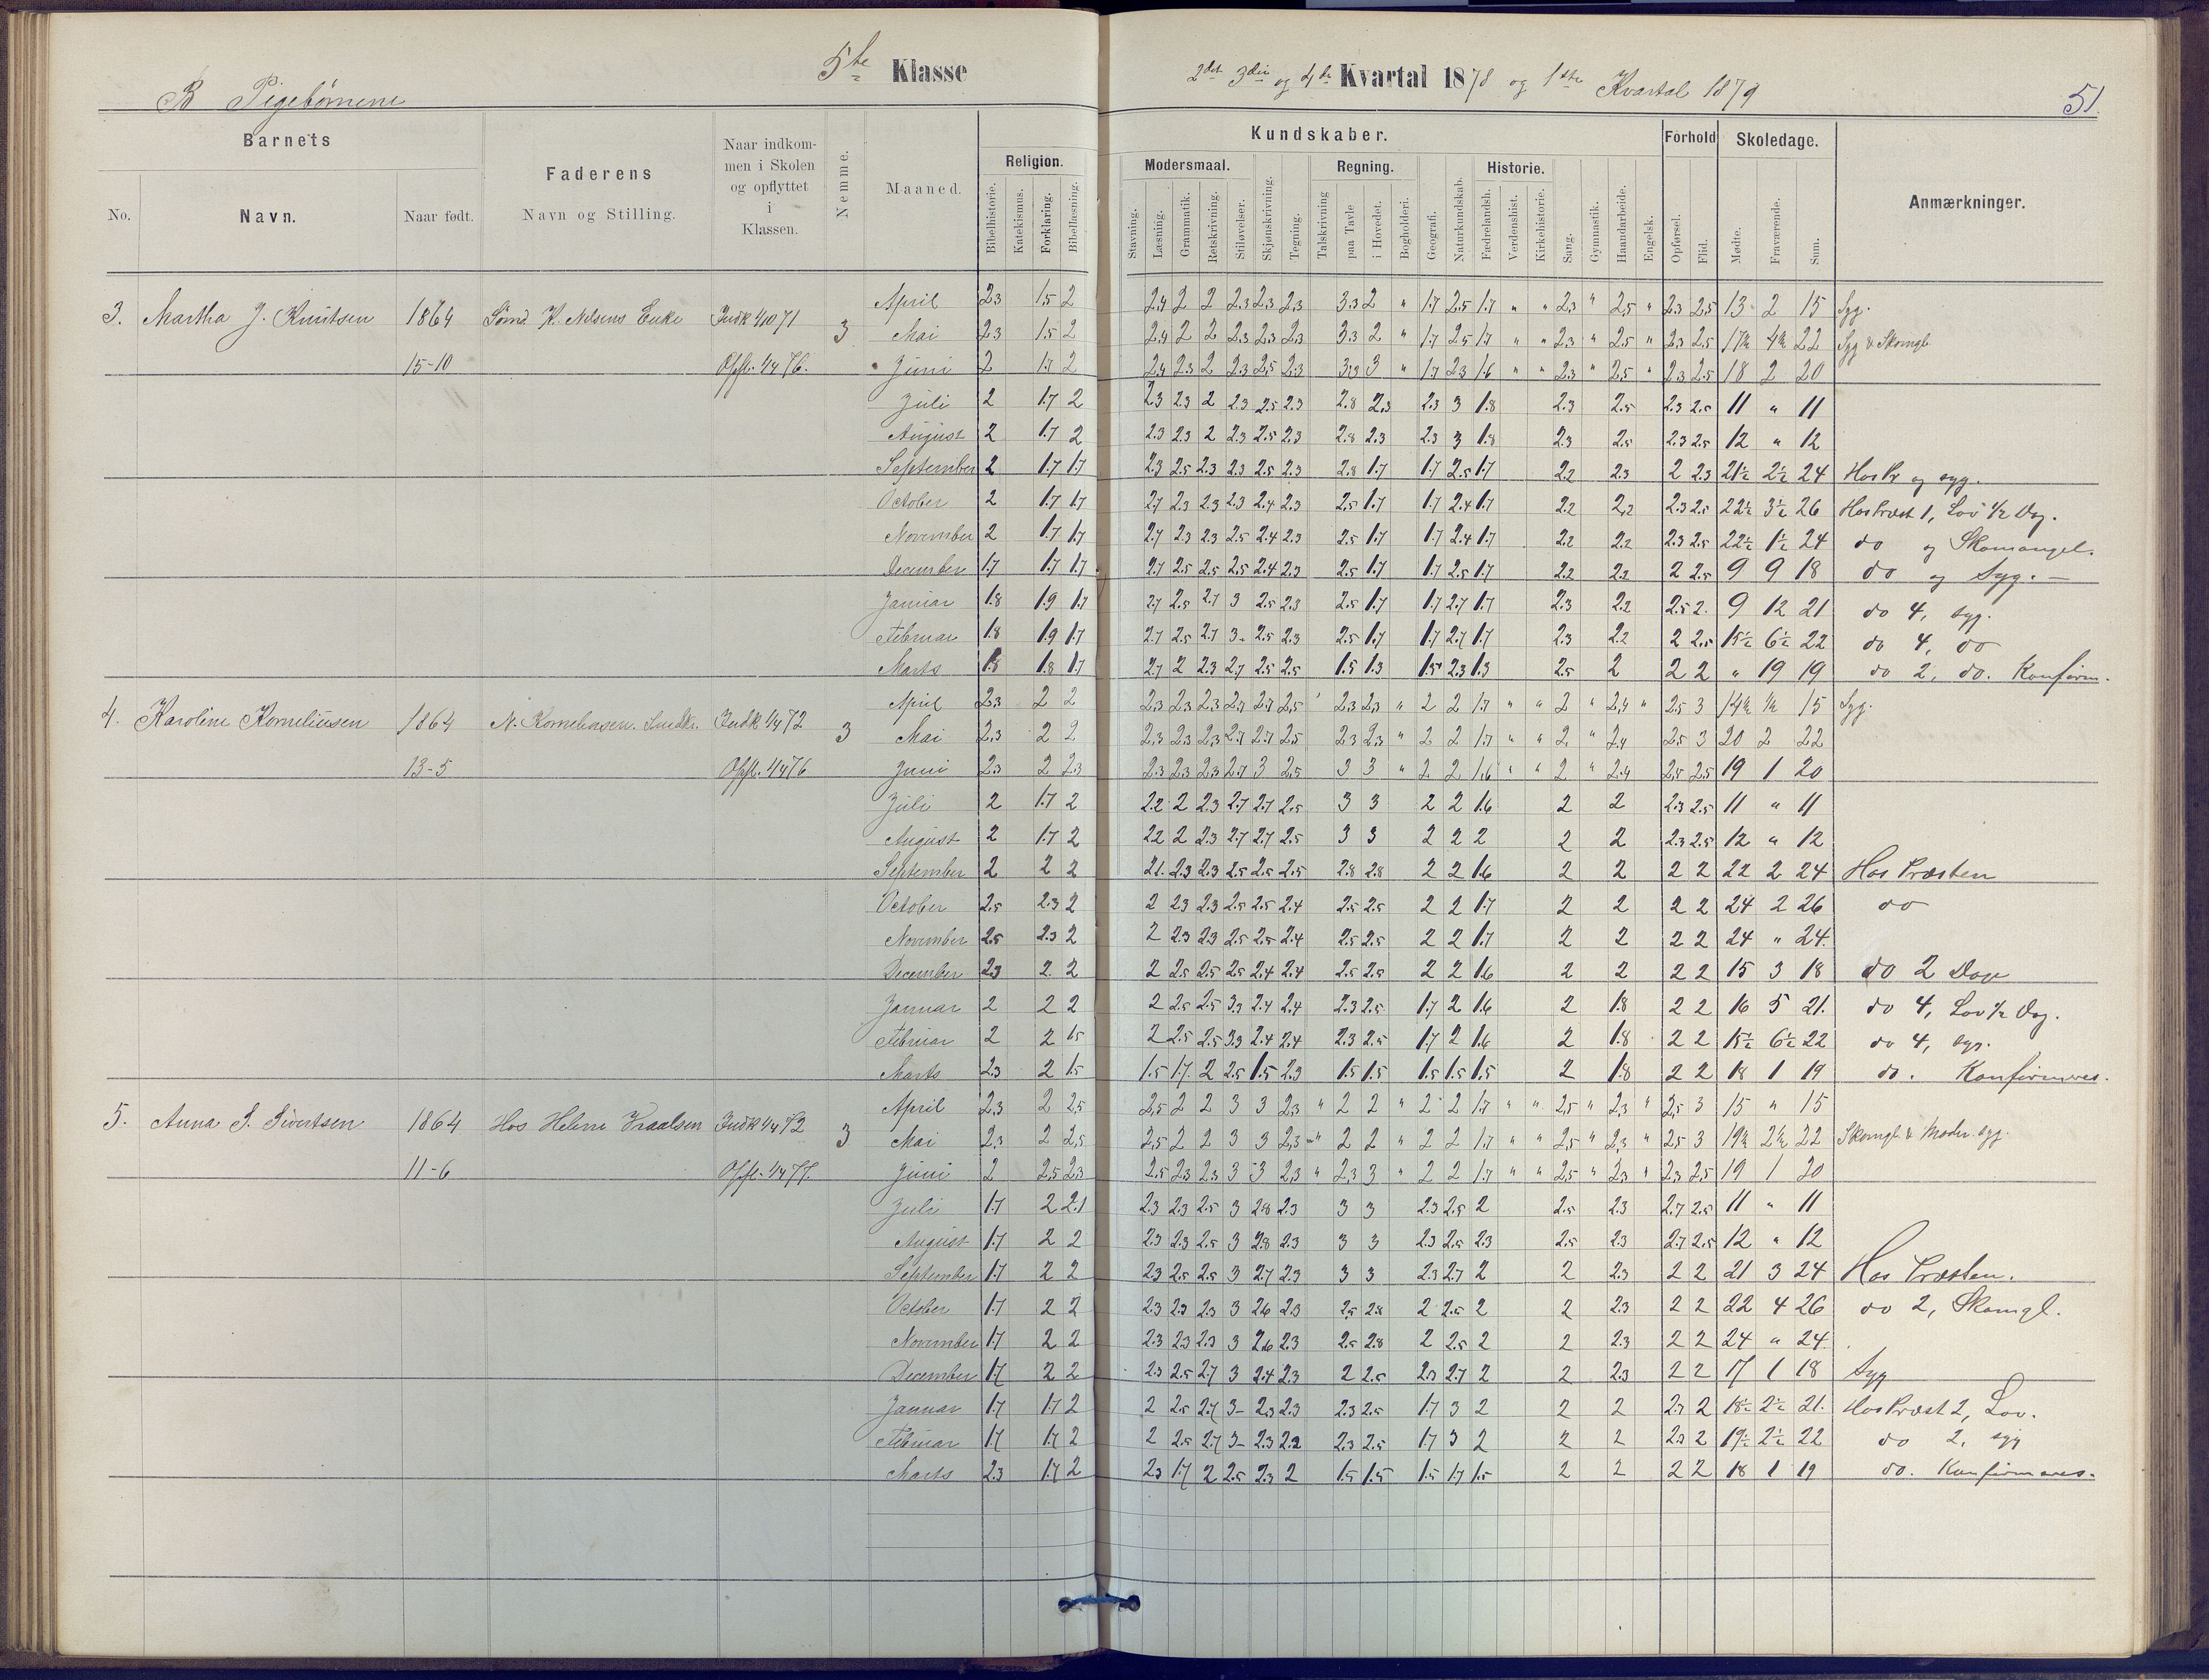 5te Klasse
2det 3die og 4de Kvartal 1878 og 1ste Kvartal 1879
51.
B Pigebørnene
Barnets
No.
Navn.
Naar født.
Faderens
Navn og Stilling.
Naar indkom-
men i Skolen
og opflyttet
i
Klassen.
Nemme.
Maaned.
Religion.
Bibelhistorie.
Katekismus.
Forklaring.
Bibellæsning.
Kundskaber.
Modersmaal.
Stavning.
Læsning.
Grammatik.
Retskrivning.
Stiløvelser.
Skjønskrivning.
Tegning.
Regning.
Talskrivning
paa Tavle
i Hovedet.
Bogholderi.
Geografi.
Naturkundskab.
Historie.
Fædrelandsh.
Verdenshist.
Kirkehistorie.
Sang.
Gymnastik.
Haandarbeide.
Engelsk.
Forhold
Opførsel.
Flid.
Skoledage.
Mødte.
Fraværende.
Sum.
Anmærkninger.
3. Martha J. Knutsen 1864 Sømd. K. Nelsens Enke 3
15-10
April 2.3 1.5 2 2.4 2 2 2.3 2.3 2.3 3.3 2 " 1.7 2.5 1.7 " " 2.3 " 2.5 " 2.3 2.5 13 2 15 Syg.
Mai 2.3 1.5 2 2.4 2 2 2.3 2.3 2.3 3.3 2 " 1.7 2.5 1.7 " " 2.3 " 2.5 " 2.3 2.5 17½ 4½ 22 Syg & Skomgl
Juni 2 1.7 2 2.4 2.3 2 2.3 2.5 2.3 3 " 1.7 2.3 1.6 " " 2.3 " 2.5 " 2.3 2.5 18 2 20
Juli 2 1.7 2 2.3 2.3 2 2.3 2.5 2.3 2.8 2.3 2.3 3 1.8 2.3 2.5 2.3 2.5 11 " 11
August 2 1.7 2 2.3 2.3 2 2.3 2.5 2.3 2.8 2.3 2.3 3 1.8 2.3 2.5 2.3 2.5 12 " 12
September 2 1.7 1.7 2.3 2.5 2.3 2.3 2.5 2.3 2.8 1.7 1.7 2.5 1.7 2.2 2.3 2 2.3 21½ 2½ 24 Hos Pr og syg.
October 2 1.7 1.7 2.7 2.3 2.3 2.3 2.4 2.3 2.5 1.7 1.7 2.4 1.7 2.2 2.2 2.3 2.5 22½ 3½ 26 Hos Præst 1, Lov ½ Dag.
November 2 1.7 1.7 2.7 2.3 2.3 2.5 2.4 2.3 2.5 1.7 1.7 2.4 1.7 2.2 2.2 2.3 2.5 22½ 1½ 24 do og Skomangel.
December 1.7 1.7 1.7 2.7 2.5 2.5 2.5 2.4 2.3 2.5 1.7 1.7 2.5 1.7 2.2 2.2 2 2.5 9 9 18 do og Syg. –
Januar 1.8 1.9 1.7 2.7 2.5 2.7 3 2.5 2.3 2.5 1.7 1.7 2.7 1.7 2.3 2.2 2.5 2. 9 12 21 do 4, syg.
Februar 1.8 1.9 1.7 2.7 2.5 2.7 3- 2.5 2.3 2.5 1.7 1.7 2.7 1.7 2.3 2.2 2 2.5 15½ 6½ 22 do 4, do
Marts 1.8 1.8 1.7 2.7 2 2.3 2.7 2.5 2.5 1.5 1.3 1.5 2.3 1.3 2.5 2 2 2 " 19 19 do 2, do. Konfirm.
4. Karoline Korneliusen 1864 N. Korneliusen. Indk 1/4 72 3
13-5 Opfl. 1/4 76
April 2.3 2 2 2.3 2.3 2.3 2.7 2.7 2.5 ' 2.3 2.3 " 2 2 1.7 " " 2 " 2.4 " 2.5 3 14½ ½ 15 Syg.
Mai 2.3 2 2 2.3 2.3 2.3 2.7 2.7 2.5 2.3 2.3 " 2 2 1.7 " " 2 " 2.4 2.5 3 20 2 22
Juni 2.3 2 2.3 2.3 2.3 2.3 2.7 3 2.5 3 3 " 2 2 1.6 " " 2 " 2.4 2.5 2.5 19 1 20
Juli 2 1.7 2 2.2 2 2.3 2.7 2.7 2.5 3 3 2 2 1.6 2 2 2.3 2.5 11 " 11
August 2 1.7 2 2.2 2 2.3 2.7 2.7 2.5 3 3 2 2 2 2 2 2.3 2.5 12 " 12
September 2 2 2 2.1. 2.3 2.3 2.5 2.5 2.5 2.8 2.8 2 2 1.6 2 2 2 2 22 2 24 Hos Præsten
October 2.5 2.3 2 2 2.3 2.3 2.5 2.5 2.4 2.5 2.5 2 2 1.7 2 2 2 2 24 2 26 do
November 2.5 2.3 2 2 2.3 2.3 2.5 2.5 2.4 2.5 2.5 2 2 1.7 2 2 2 2 24 " 24.
December 2.3 2 2 2 2.5 2.5 2.5 2.4 2.4 2.5 2.5 2 2 1.6 2 2 2 2 15 3 18 do 2 Dage
Januar 2 2 2 2 2.5 2.5 3.3 2.4 2.4 2.3 2.5 1.7 2 1.6 2 1.8 2 2 16 5 21. do 4, Lov ½ Dag.
Februar 2 2 1.5 2 2.5 2.5 3.3 2.4 2.4 2.3 2.5 1.7 2 1.6 2 1.8 2 2 15½ 6½ 22 do 4, syg.
Marts 2.3 2 1.5 1.5 1.7. 2 2.5 1.5 2.3 1.5 1.5 1.5 1.5 1.5 2 1.8 2 2 18 1 19 do. Konfirmeres.
5. Anna S. Sivertsen 1864 Hos Helene Indk 1/4 72 3
11-6 Opfl. 1/4 77.
April 2.3 2 2.5 2.5 2 2 3 3 2.3 " 2 2 " 2 2 1.7 " " 2.5 " 2.3 " 2.5 3 15 " 15
Mai 2.3 2 2.5 2.5 2 2 3 3 2.3 " 2 2 " 2 2 1.7 " " 2.5 " 2.3 " 2.5 3 19½ 2½ 22 Skomgl. & Moder. syg.
Juni 2 2.5 2.3 2.5 2.3 2.3 3 3 2.3 " 2.3 3 " 2 2 1.7 " " 2.5 " 2.3 " 2.3 2.5 19 1 20
Juli 1.7 2 2.1 2.3 2.3 2.5 3 2.8 2.3 3 3 2.3 2.5 2 2.5 2.3 2.7 2.5 11 " 11
August 1.7 2 2 2.3 2.3 2.5 3 2.8 2.3 3 3 2.3 2.5 2.3 2.5 2.3 2.7 2.5 12 " 12
September 1.7 2 2 2.3 2.5 2.5 3 2.7 2.3 3 3 2.3 2.7 2 2 2.3 2 2 21 3 24 Hos Præsten.
October 1.7 2 2 2.3 2.3 2.3 3 2.6 2.3 2.5 2.8 2 2.5 2 2 2.3 2 2 22 4 26 do 2, Skomgl.
November 1.7 2 2 2.3 2.3 2.3 3 2.6 2.3 2.5 2.8 2 2.5 2 2 2.3 2 2 24 " 24.
December 1.7 2 2 2.3 2.5 2.7 3 2.4 2.3 2 2.5 2.3 2.7 2 2 2.3 2 2 17 1 18 Syg
Januar 1.7 1.7 2 2 2.5 2.7 3- 2.3 2.3 2.3 2.5 1.7 3 2 2 2 2.3 2 18½ 2½ 21. Hos Præst 2, Lov.
Februar 1.7 1.7 2 2 2.5 2.7 3- 2.3 2.2 2.3 2.5 1.7 3 2 2 2 2.3 2 19½ 2½ 22 do 2, syg
Marts 2.3 1.7 2 2.3 1.7 2 2.5 2.3 2 1.5 1.5 1.5 1.7 1.5 2 2 2 2 18 1 19 do. Konfirmeres.